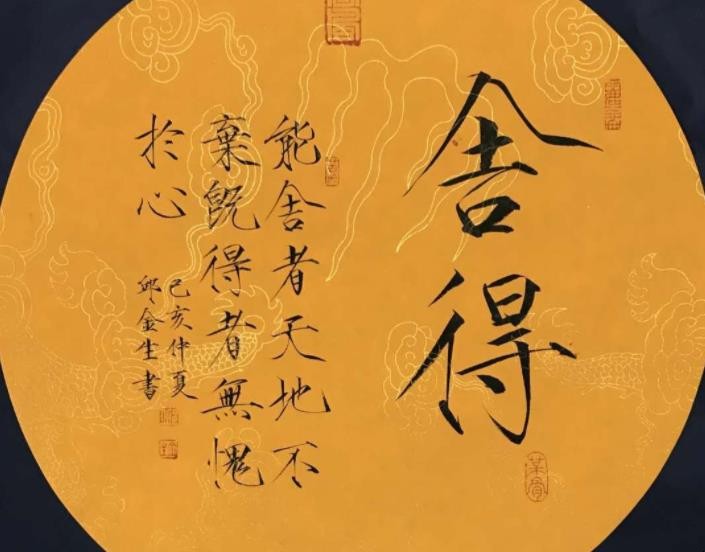 舍得
能舍者天地不
棄既得者無愧
於心
己亥仲夏
邱金生書